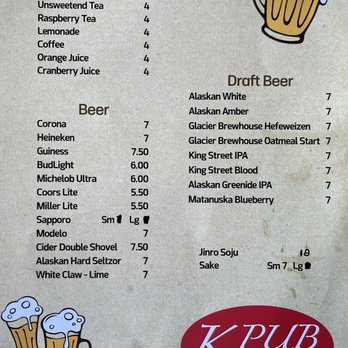 Unsweetend Tea 4
Raspberry Tea 4
Lemonade 4
Coffee 4
Orange Juice 4
Cranberry Juice 4
Beer
Corona 7
Heineken 7
Guiness 7.50
BudLight 6.00
Michelob Ultra 6.00
Coors Lite 5.50
Miller Lite 5.50
Sapporo Sm Lg
Modelo 7
Cider Double Shovel 7.50
Alaskan Hard Seltzor 7
White Claw - Lime 7
Draft Beer
Alaskan White 7
Alaskan Amber 7
Glacier Brewhouse Hefeweizen 7
Glacier Brewhouse Oatmeal Start 7
King Street IPA 7
King Street Blood 7
Alaskan Greenide IPA 7
Matanuska Blueberry 7
Jinro Soju
Sake Sm 7 Lg
K PUB